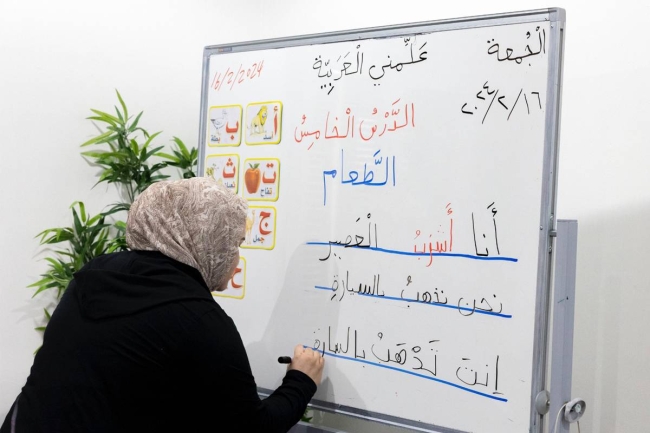 الْجُمعة
علّمني الْعَرَبِيّة
16/2/2024
٢٠٢٤/٢/١٦
الدَّرْسُ الْخامِسُ
الطَّعام
أَنا أَشرَبُ الْعَصير
نحن نذهبُ بالسيارةِ
إنتَ تَذْهَبْ بالسارة
أ
أسد
ب
بطة
ت
تفاح
ث
ج
جمل